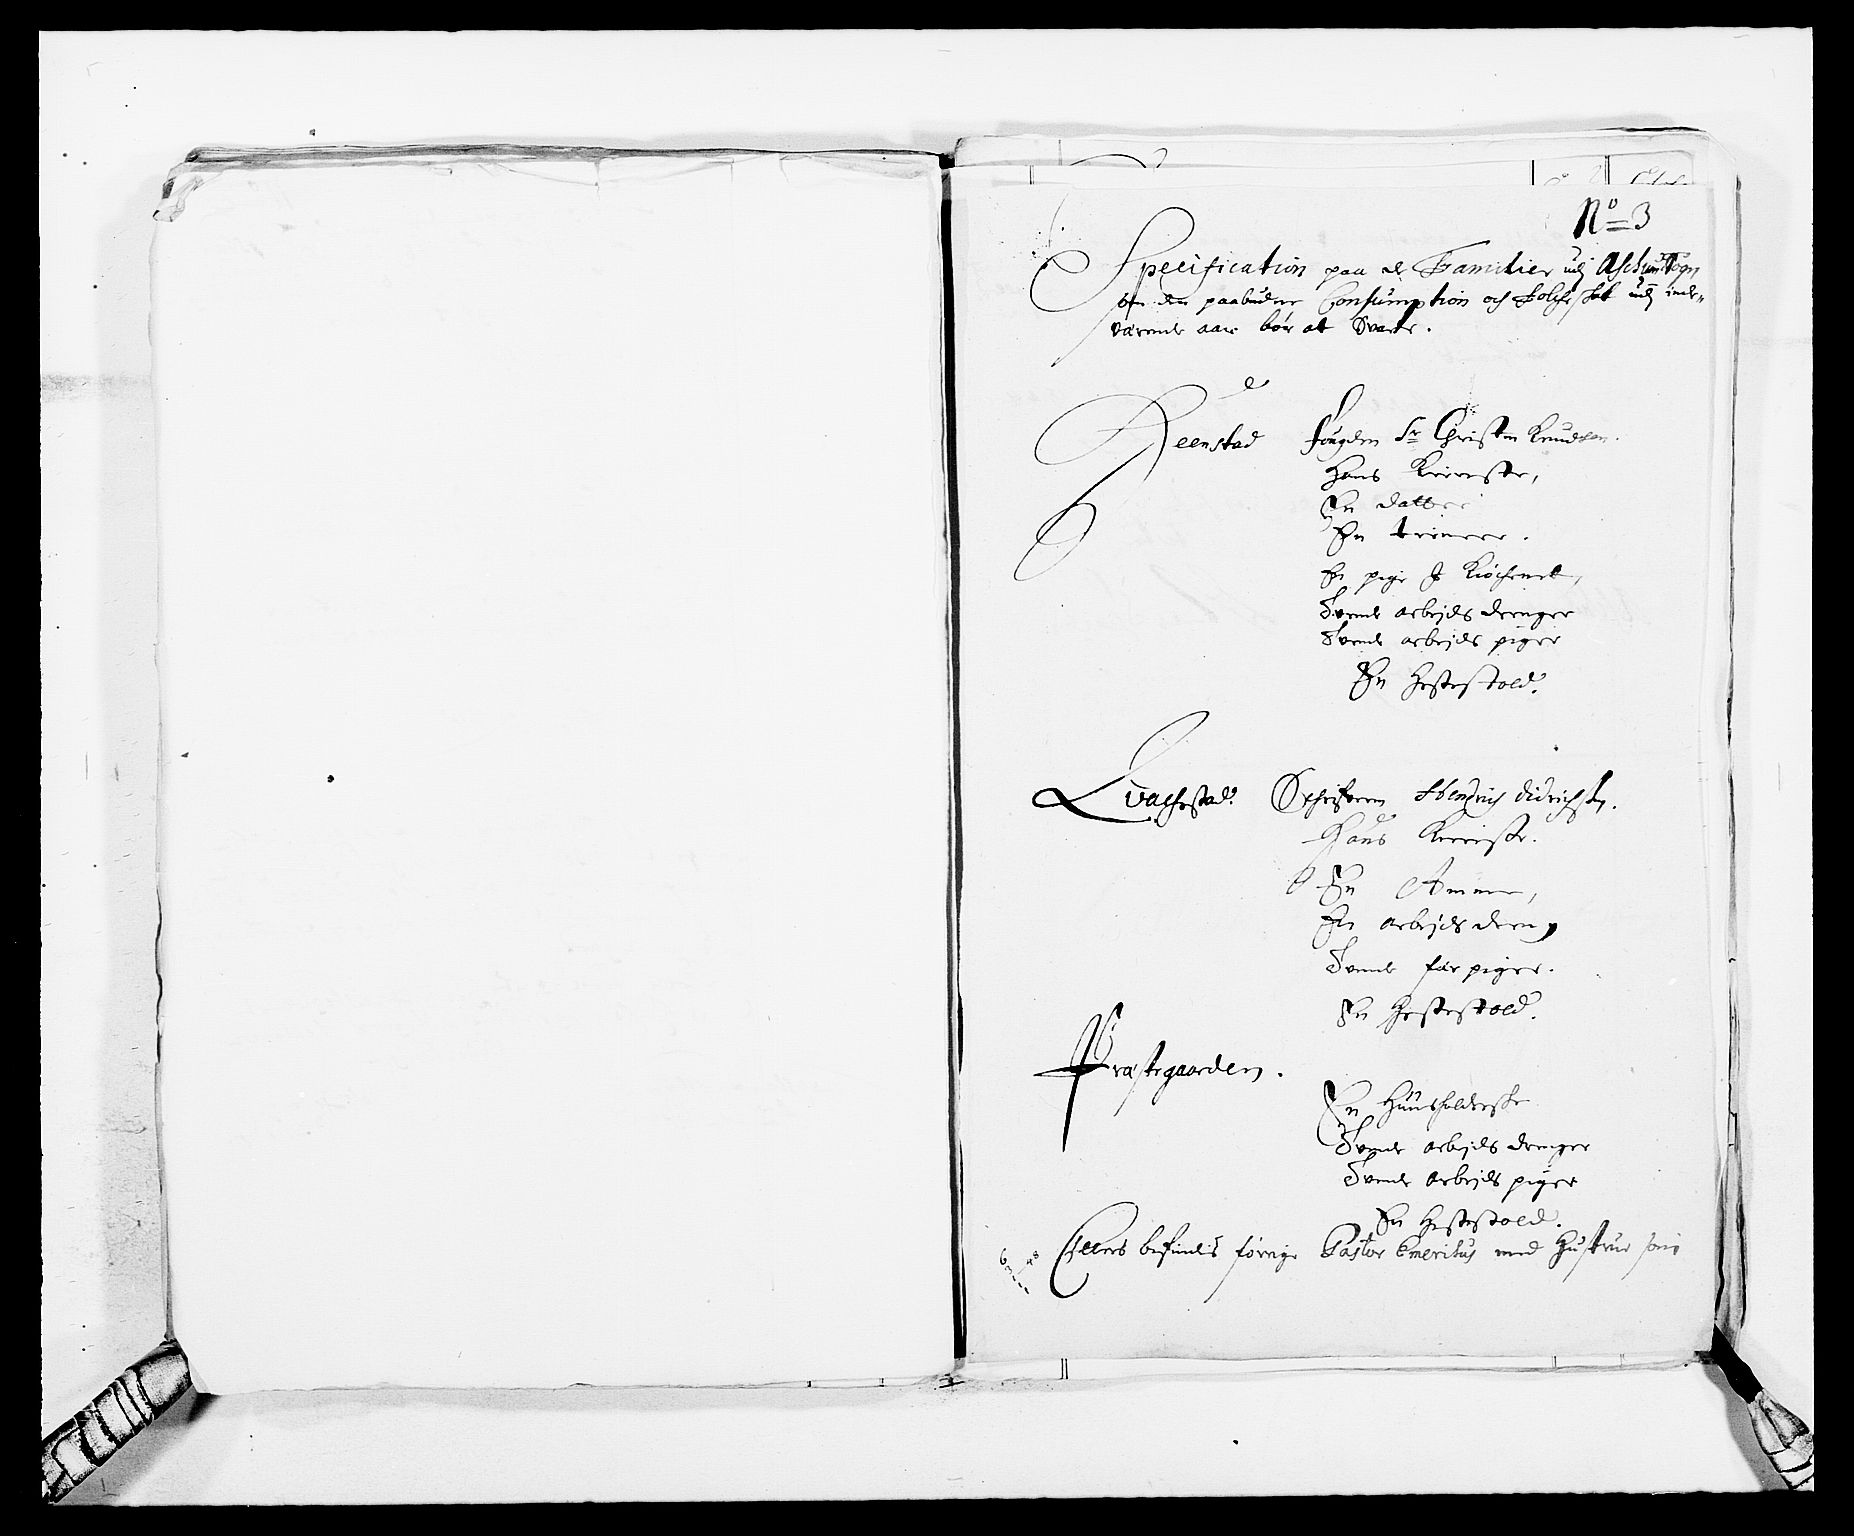 No 3
Specification paa de Familier udj Aschim Sogn
som den paabudne Consumption och Folcheskat udj inde„
værende aar bør at Svare.
Reenstad Fougden Sr Christen Knudsen.
Hans Kiereste,
En datter
En tienere.
En pige J Kiöchenet,
Tvende arbejds drenger
Tvende arbejds piger
En Hestestold.
Lvachestad. Schrifveren Hendrich Didrichsen.
Hans Kiereste.
En Amme,
En arbejds dreng
Tvende får piger.
En Hestestold.
Præstegaarden.
En Huusholderske
Tvende arbejds drenger
Tvende arbejds piger
En Hestestold.
Ellers befindes forrige Pastor Emeritus med Hustrue som